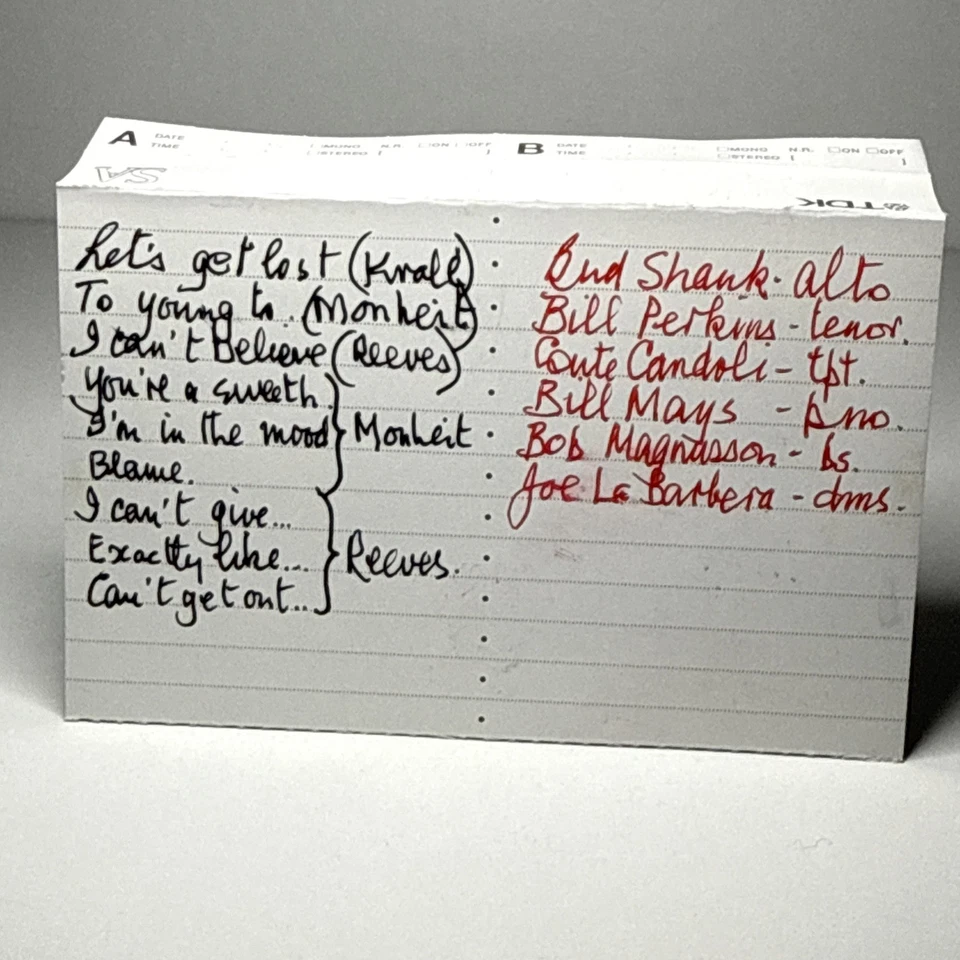 A DATE TIME □MONO □STEREO N.R. □ON □OFF [ ]
B DATE TIME □MONO □STEREO N.R. □ON □OFF [ ]
SA
TDK
Let's get lost (Krall)
To young to.. (Monheit)
I can't Believe (Reeves)
You're a sweeth.
I'm in the mood
Monheit
Blame.
I can't give...
Exactly like...
Reeves.
Can't get out...
Bud Shank - alto
Bill Perkins - tenor.
Conte Candoli - tpt.
Bill Mays - pno.
Bob Magnusson - bs.
Joe La Barbera - dms.